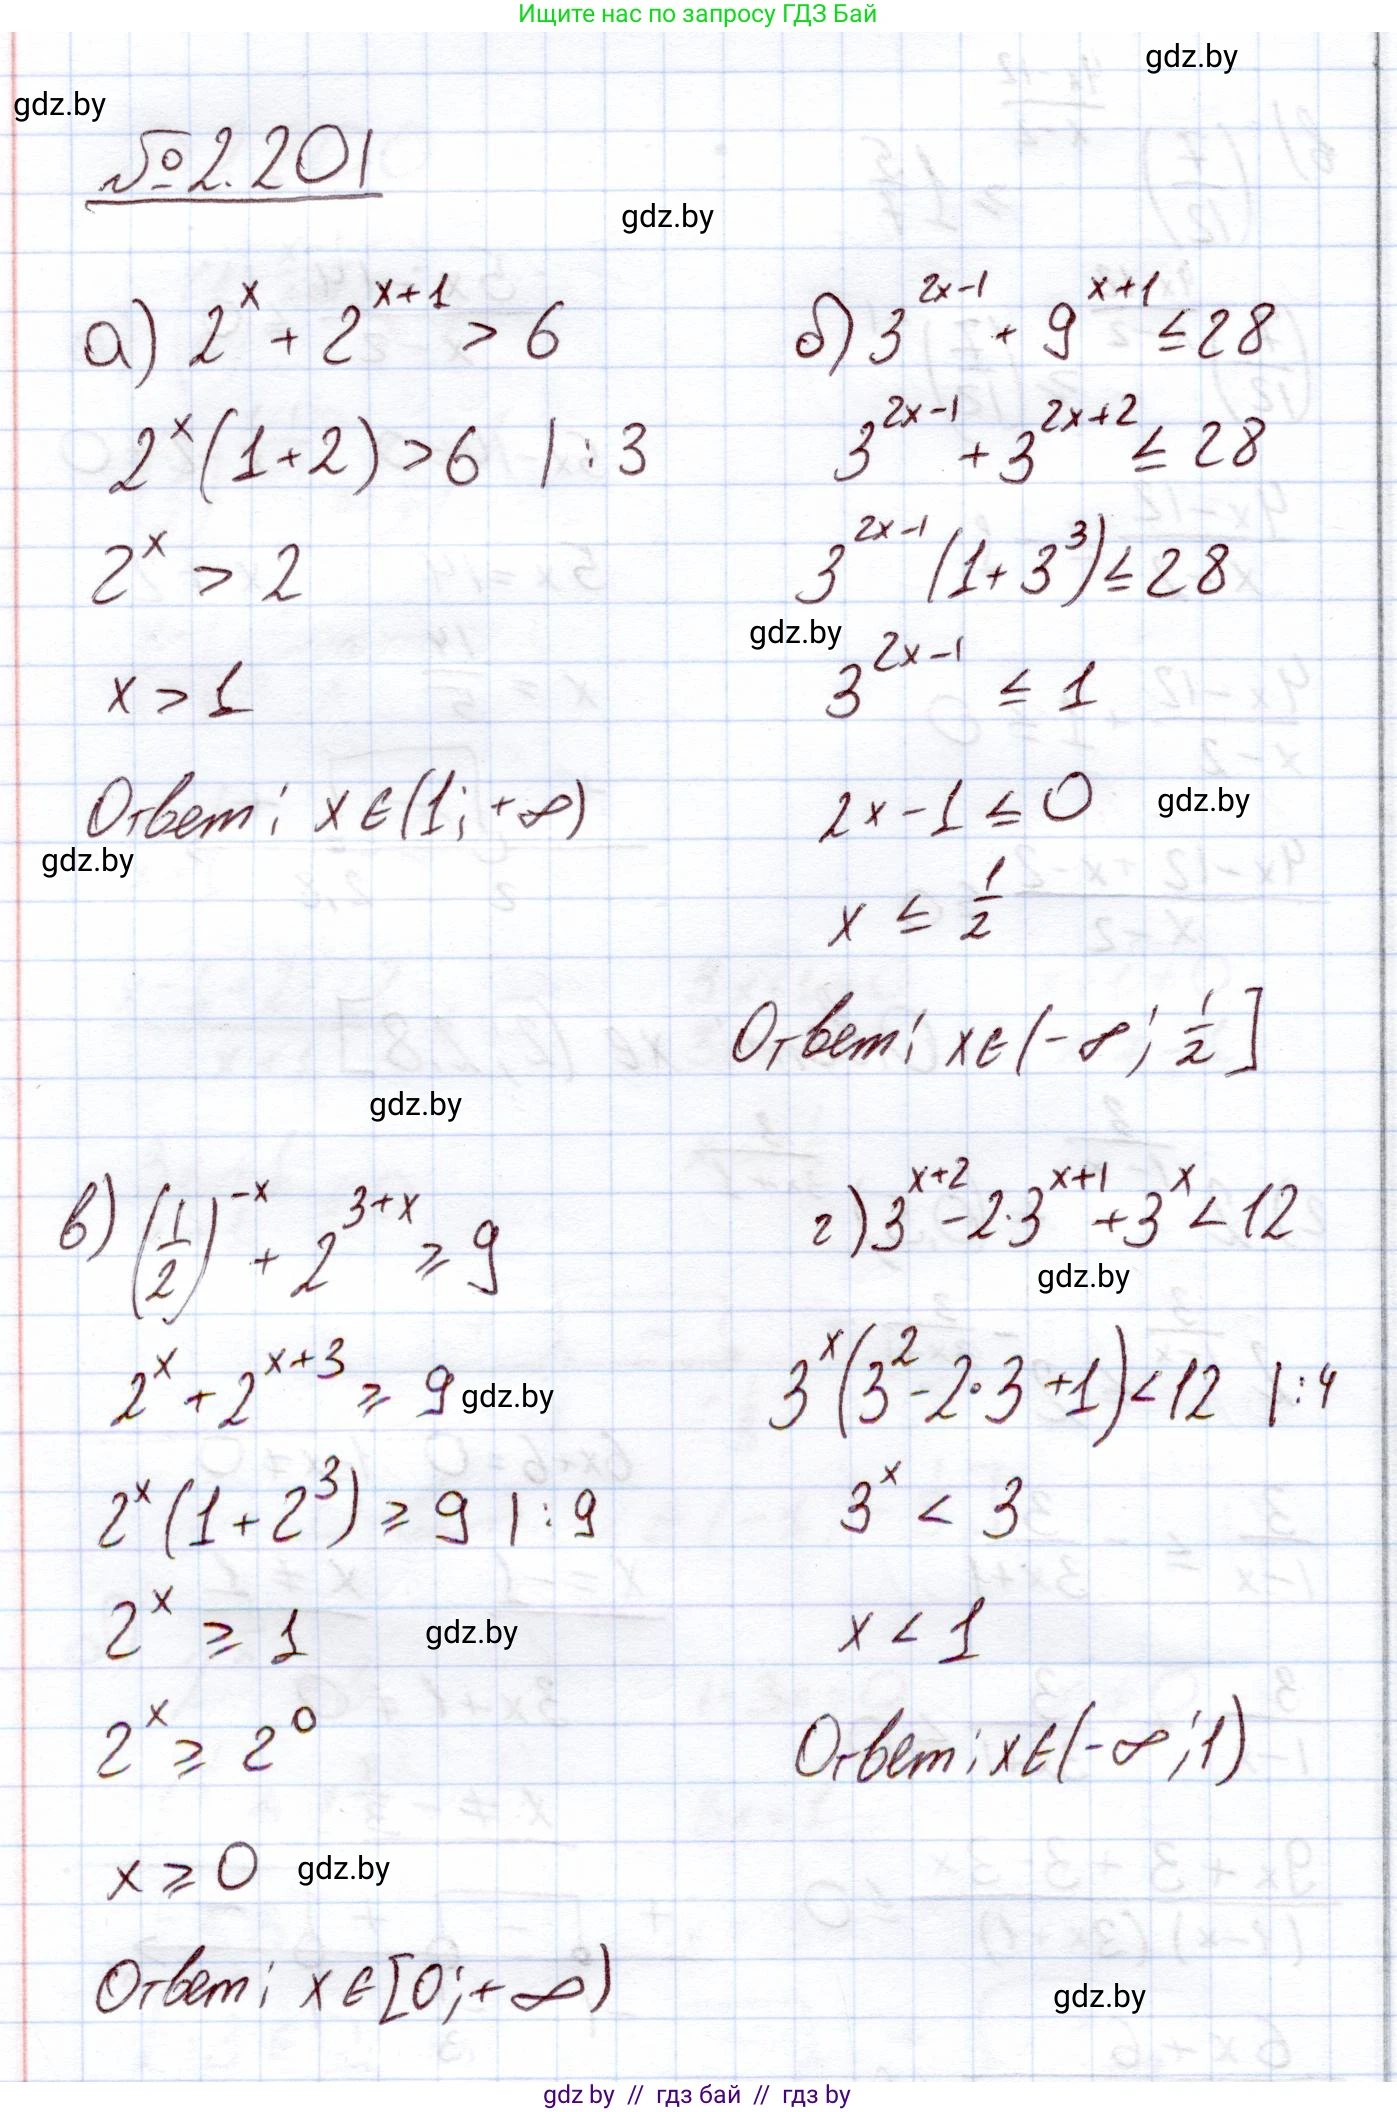 Ищите нас по запросу ГДЗ Бай
gdz.by
gdz.by
№2.201
gdz.by
а) 2^x + 2^(x+1) > 6
2^x (1+2) > 6 | : 3
2^x > 2
x > 1
Ответ: x ∈ (1; +∞)
gdz.by
б) 3^(2x-1) + 9^(x+1) ≤ 28
3^(2x-1) + 3^(2x+2) ≤ 28
3^(2x-1) (1+3^3) ≤ 28
gdz.by
3^(2x-1) ≤ 1
2x-1 ≤ 0
gdz.by
x ≤ 1/2
Ответ: x ∈ (-∞; 1/2]
gdz.by
в) (1/2)^(-x) + 2^(3+x) ≥ 9
2^x + 2^(x+3) ≥ 9
gdz.by
2^x (1+2^3) ≥ 9 | : 9
2^x ≥ 1
gdz.by
2^x ≥ 2^0
x ≥ 0
gdz.by
Ответ: x ∈ [0; +∞)
г) 3^(x+2) - 2·3^(x+1) + 3^x < 12
gdz.by
3^x (3^2 - 2·3 + 1) < 12 | : 4
3^x < 3
x < 1
Ответ: x ∈ (-∞; 1)
gdz.by
gdz by // гдз бай // гдз by